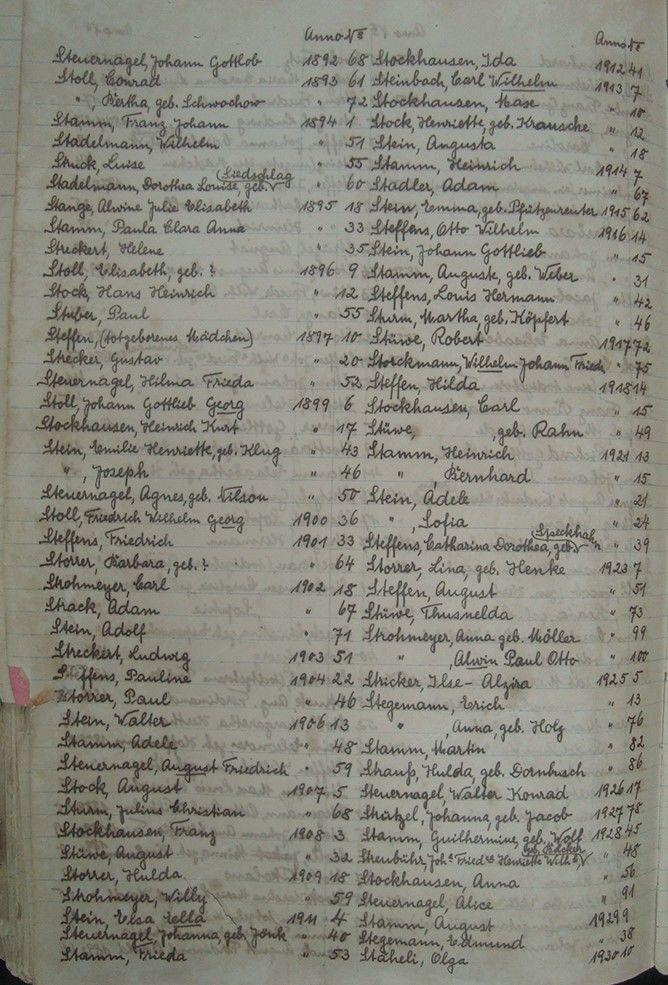 Anno No
Steuernagel, Johann Gottlob 1892 68
Stoll, Conrad 1893 61
" , Bertha, geb. Schwochow " 72
Stamm, Franz Johann 1894 1
Stadelmann, Wilhelm " 51
Struck, Luise " 55
Stadelmann, Dorothea Louise, geb. Siedschlag " 60
Stange, Alwine Julie Elisabeth 1895 18
Stamm, Paula Clara Anna " 33
Streckert, Helene " 35
Stoll, Elisabeth, geb. ? 1896 9
Stock, Hans Heinrich " 12
Stuber, Paul " 55
Steffen, (totgeborenes Mädchen) 1897 10
Strecker, Gustav " 20
Steuernagel, Hilma Frieda " 52
Stoll, Johann Gottlieb Georg 1899 6
Stockhausen, Heinrich Kurt " 17
Stein, Emilie Henriette, geb. Klug " 43
" , Joseph " 46
Steuernagel, Agnes, geb. Nilson " 50
Stoll, Friedrich Wilhelm Georg 1900 36
Steffens, Friedrich 1901 33
Storrer, Barbara, geb. ? " 64
Strohmeyer, Carl 1902 18
Strack, Adam " 67
Stein, Adolf " 71
Streckert, Ludwig 1903 51
Steffens, Pauline 1904 22
Storrer, Paul " 46
Stein, Walter 1906 13
Stamm, Adele " 48
Steuernagel, August Friedrich " 59
Stock, August 1907 5
Sturm, Julius Christian " 68
Stockhausen, Franz 1908 3
Stüwe, August " 32
Storrer, Hulda 1909 18
Strohmeyer, Willy " 59
Stein, Elsa Ella 1911 4
Steuernagel, Johanna, geb. Jönk " 40
Stamm, Frieda " 53
Anno No
Stockhausen, Ida 1912 41
Steinbach, Carl Wilhelm 1913 7
Stockhausen, " 10
Stock, Henriette, geb. Krausche " 12
Stein, Augusta " 18
Stamm, Heinrich 1914 7
Stadler, Adam " 67
Stein, Emma, geb. Pfützenreuter 1915 62
Steffens, Otto Wilhelm 1916 14
Stein, Johann Gottlieb " 15
Stamm, Auguste, geb. Weber " 31
Steffens, Louis Hermann " 42
Sturm, Martha, geb. Höpfert " 46
Stüwe, Robert 1917 72
Storckmann, Wilhelm Johann Friedr. " 75
Steffen, Hilda 1918 14
Stockhausen, Carl " 15
Stüwe, , geb. Rahn " 49
Stamm, Heinrich 1921 13
" , Bernhard " 15
Stein, Adele " 21
" , Sofia " 24
Steffens, Catharina Dorothea, geb. Speckhahn " 39
Storrer, Lina, geb. Henke 1923 7
Steffen, August " 51
Stüwe, Thusnelda " 73
Strohmeyer, Anna geb. Möller " 99
" , Alwin Paul Otto " 100
Stricker, Ilse-Alzira 1925 5
Stegemann, Erich " 13
" , Anna, geb. Holz " 76
Stamm, Martin " 82
Strauß, Hulda, geb. Dornbusch " 86
Steuernagel, Walter Konrad 1926 17
Stützel, Johanna, geb. Jacob 1927 78
Stamm, Guilhermine, geb. Wolf 1928 45
Streubühr, Joh.ª Fried.ke Henriette Wilh.e geb. Bäcker " 48
Stockhausen, Anna " 56
Steuernagel, Alice " 91
Stamm, August 1929 9
Stegemann, Edmund " 38
Staheli, Olga 1930 10